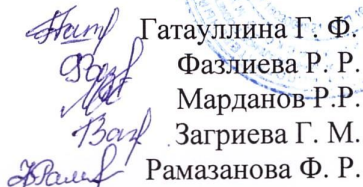 Гатауллина Г. Ф.
Фазлиева Р. Р.
Марданов Р.Р.
Загриева Г. М.
Рамазанова Ф. Р.